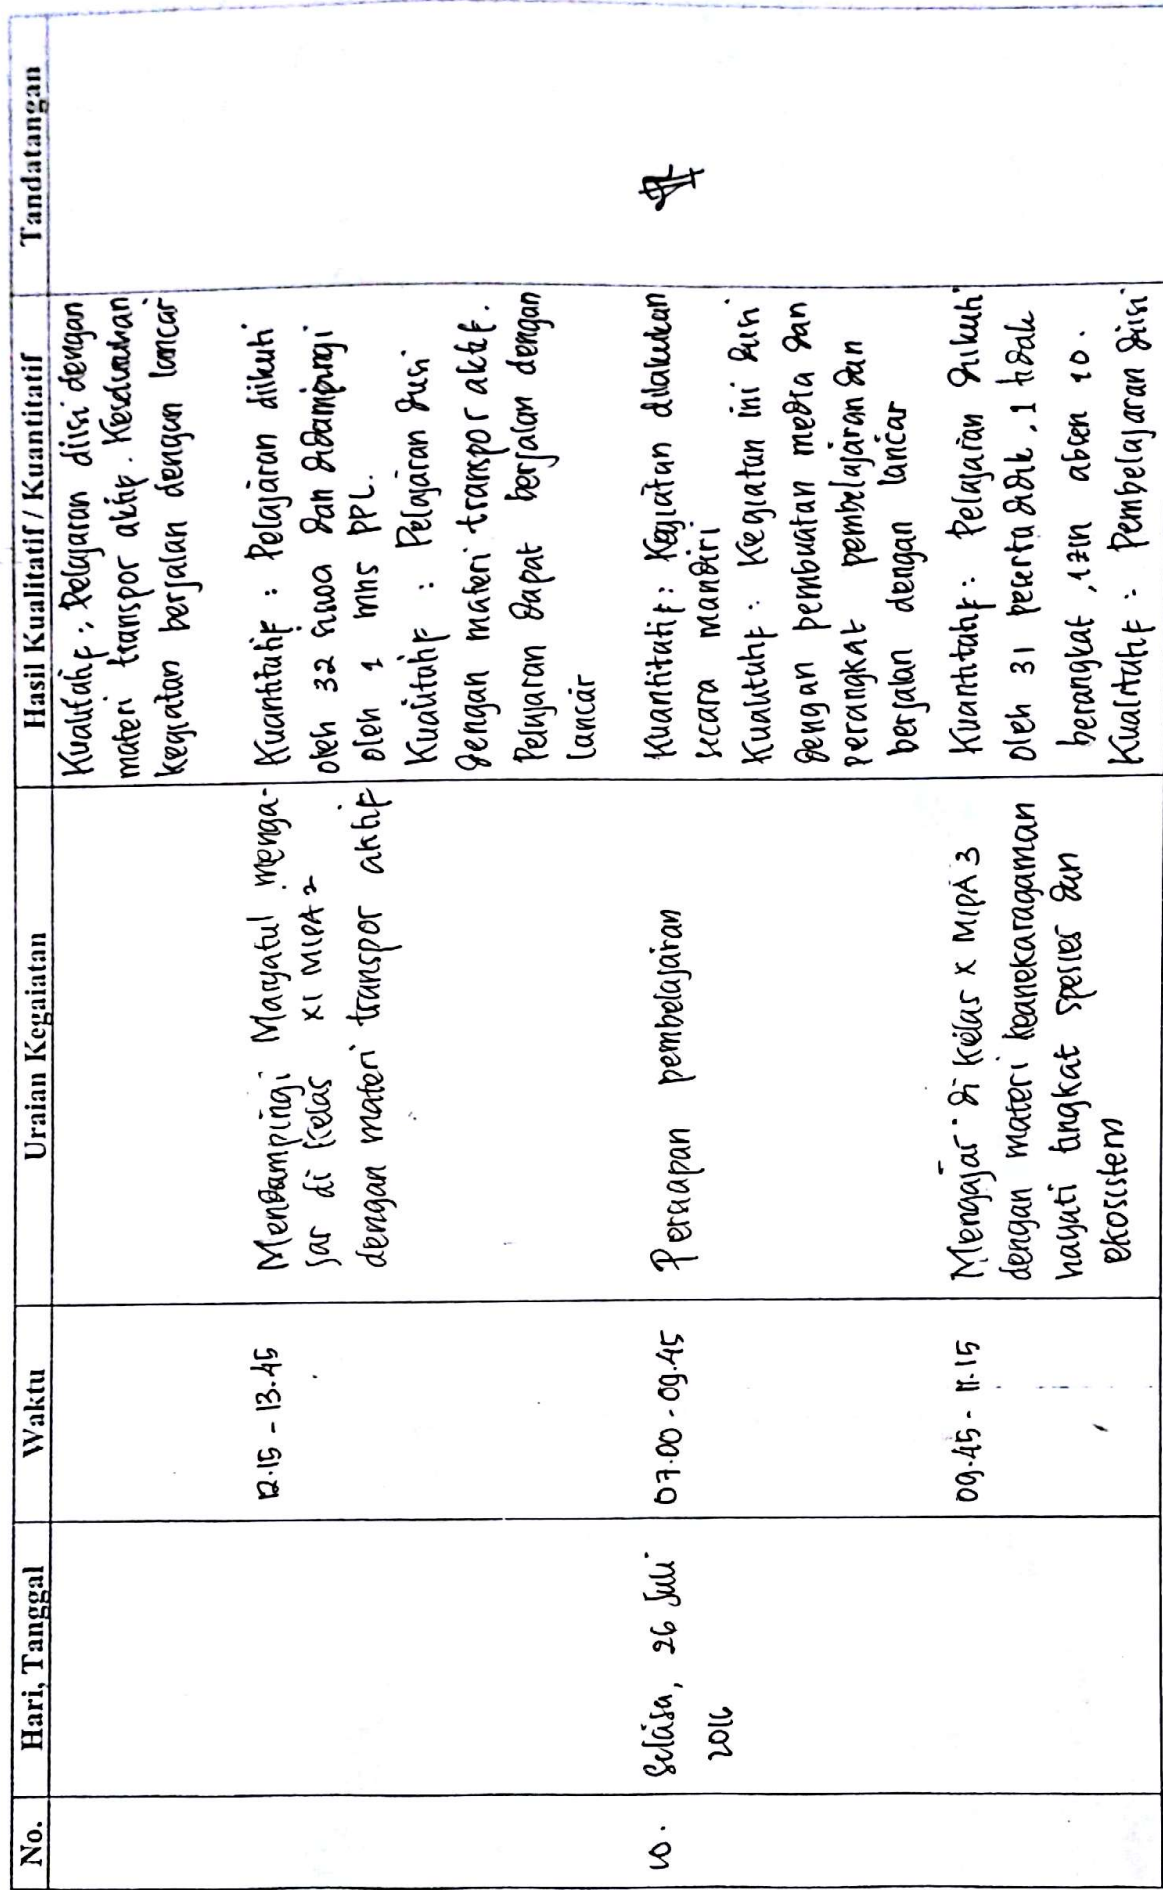 No. Hari, Tanggal Waktu Uraian Kegaiatan Hasil Kualitatif / Kuantitatif Tandatangan
Kualitatif : Pelajaran diisi dengan
materi transpor aktif. Keseluruhan
kegiatan berjalan dengan lancar
12.15 - 13.45
Mendampingi Maryatul menga-
jar di kelas XI MIPA 2
dengan materi transpor aktif
Kuantitatif : Pelajaran diikuti
oleh 32 siswa dan didampingi
oleh 1 mhs PPL.
Kualitatif : Pelajaran diisi
dengan materi transpor aktif.
Pelajaran dapat berjalan dengan
lancar
Selasa, 26 Juli
2016
07.00 - 09.45
Persiapan pembelajaran
Kuantitatif : Kegiatan dilakukan
secara mandiri
Kualitatif : Kegiatan ini diisi
dengan pembuatan media dan
perangkat pembelajaran dan
berjalan dengan lancar
09.45 - 11.15
Mengajar di kelas X MIPA 3
dengan materi keanekaragaman
hayati tingkat spesies dan
ekosistem
Kuantitatif : Pelajaran diikuti
oleh 31 peserta didik, 1 tidak
berangkat, izin absen 10.
Kualitatif : Pembelajaran diisi